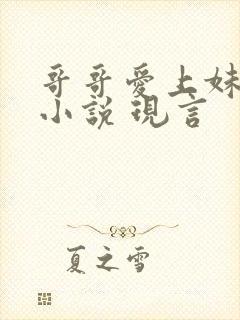 哥哥愛上妹
小說現言
夏之雪